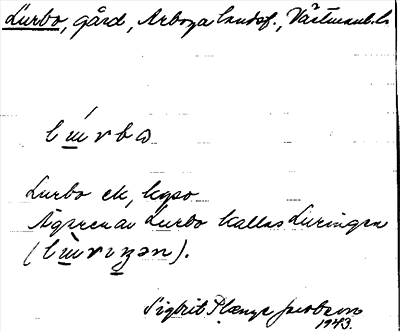 Lurbo, gård, Arboga landsf., Västmanl. l.
lú̱rba
Lurbo ek, kgso
Ägaren av Lurbo kallas Luringen
(lù̱rıŋən).
Sigbrit Plænge Jacobson
1943.